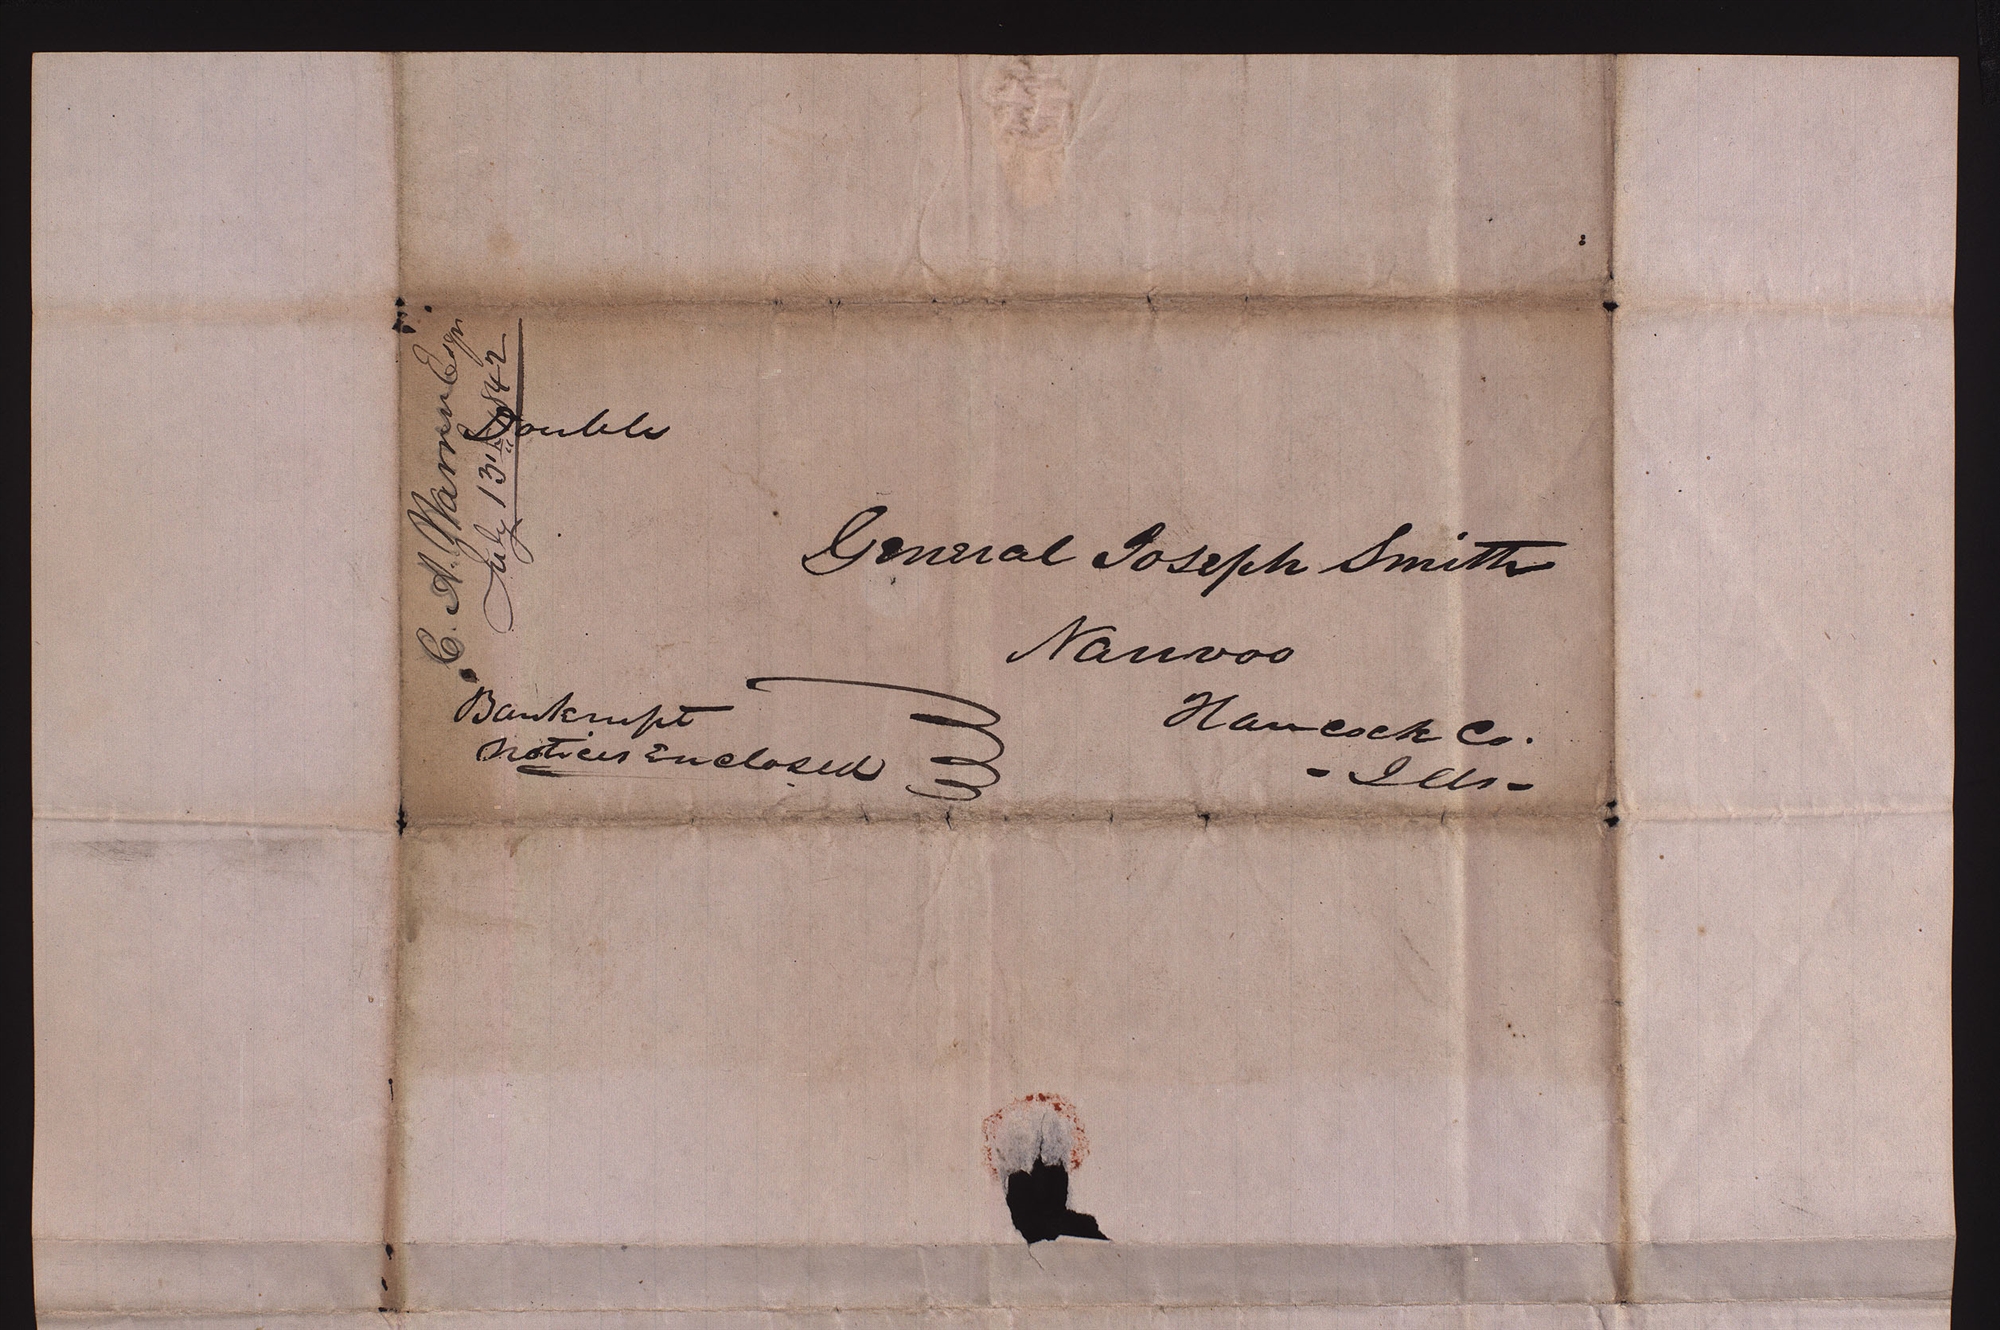 C. A. Warren Esqr
July 13th 1842
Double
General Joseph Smith
Nauvoo
Hancock Co.
- Ills -
Bankrupt
notices Enclosed